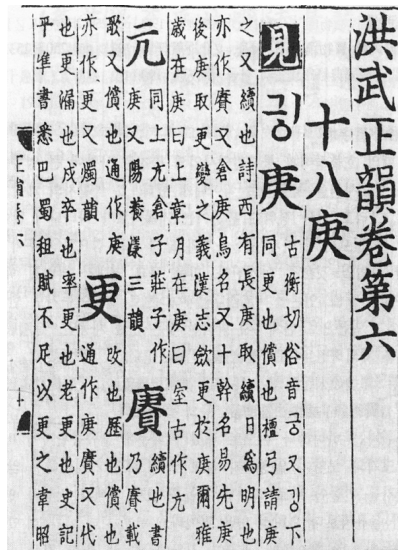 洪武正韻卷第六
十八庚
見 긩 庚 古衡切俗音긍又깅下
同更也償也檀弓請庚
之又續也詩西有長庚取續日爲明也
亦作賡又倉庚鳥名又十幹名易先庚
後庚取更變之義漢志斂更於庚爾雅
歲在庚曰上章月在庚曰窒古作亢
亢 同上亢倉子莊子作
庚又陽養漾三韻
賡 續也書
乃賡載
歌又償也通作庚
亦作更又漾韻
更 改也歷也償也
通作庚賡又代
也更漏也戍卒也率更也老更也史記
平準書悉巴蜀租賦不足以更之韋昭
正韻卷六